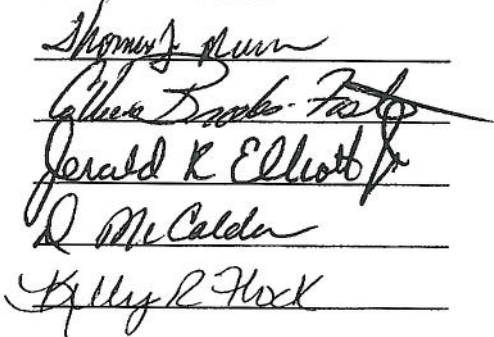 Thomas J. Munn
Brooks-Foster
Jerald R Elliott Jr
D McCalden
Kelly R Flock